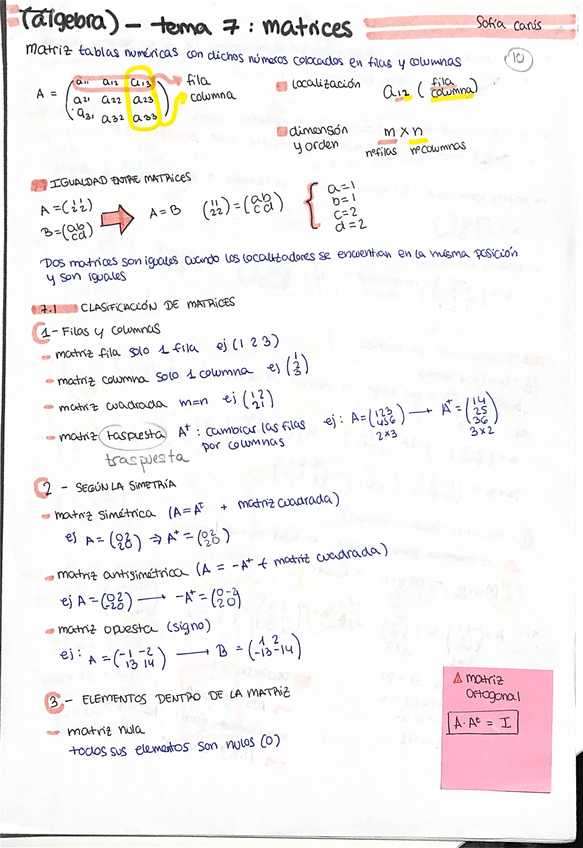 (álgebra) - tema 7: matrices
Sofía Carús
Matriz tablas numéricas con dichos números colocados en filas y columnas
10
A = (a11 a12 a13 / a21 a22 a23 / a31 a32 a33) fila columna
localización a12 (fila columna)
dimensón y orden m x n
nºfilas nºcolumnas
IGUALDAD ENTRE MATRICES
A = (1 1 / 2 2)
B = (a b / c d)
A = B (1 1 / 2 2) = (a b / c d) { a=1 b=1 c=2 d=2
Dos matrices son iguales cuando los localizadores se encuentran en la misma posición
y son iguales
7.1 CLASIFICACCIÓN DE MATRICES
1 - Filas y columnas
matriz fila solo 1 fila ej (1 2 3)
matriz columna solo 1 columna ej (1 / 2 / 3)
matriz cuadrada m=n ej (1 2 / 2 1)
matriz taspuesta At : cambiar las filas
por columnas
ej: A = (1 2 3 / 4 5 6) → At = (1 4 / 2 5 / 3 6)
2x3 3x2
traspuesta
2 - SEGÚN LA SIMETRÍA
matriz simétrica (A=At + matriz cuadrada)
ej A = (0 2 / 2 0) ⇒ At = (0 2 / 2 0)
matriz antisimétrica (A = -At + matriz cuadrada)
ej A = (0 2 / -2 0) → -At = (0 -2 / 2 0)
matriz opuesta (signo)
ej: A = (-1 -2 / 13 14) → B = (1 2 / -13 -14)
3 - ELEMENTOS DENTRO DE LA MATRIZ
matriz nula
todos sus elementos son nulos (0)
matriz
ortogonal
A · At = I